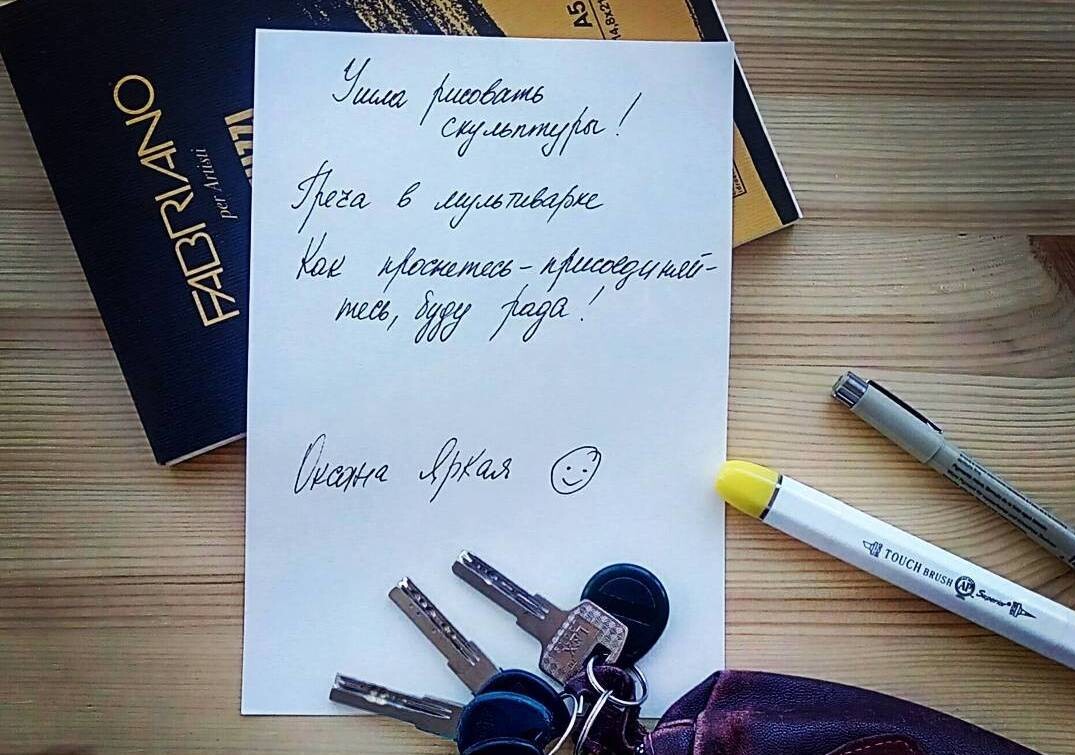 Ушла рисовать
скульптуры!
Греча в мультиварке
Как проснетесь - присоединяй-
тесь, буду рада!
Оксана Яркая
FABRIANO
per Artisti
A5
TOUCH BRUSH AP Superior